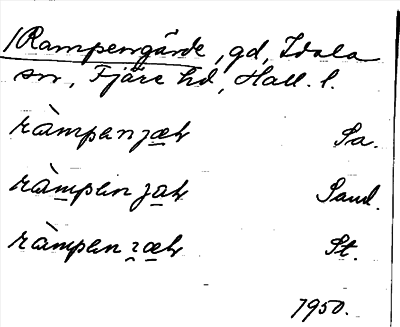 /Rampengärde, gd, Idala
sn, Fjäre hd, Hall. l.
ràmpenjæ̱ṭ Sa.
ràm̱penja̱ṭ Sand.
ràmpen St.
1950.